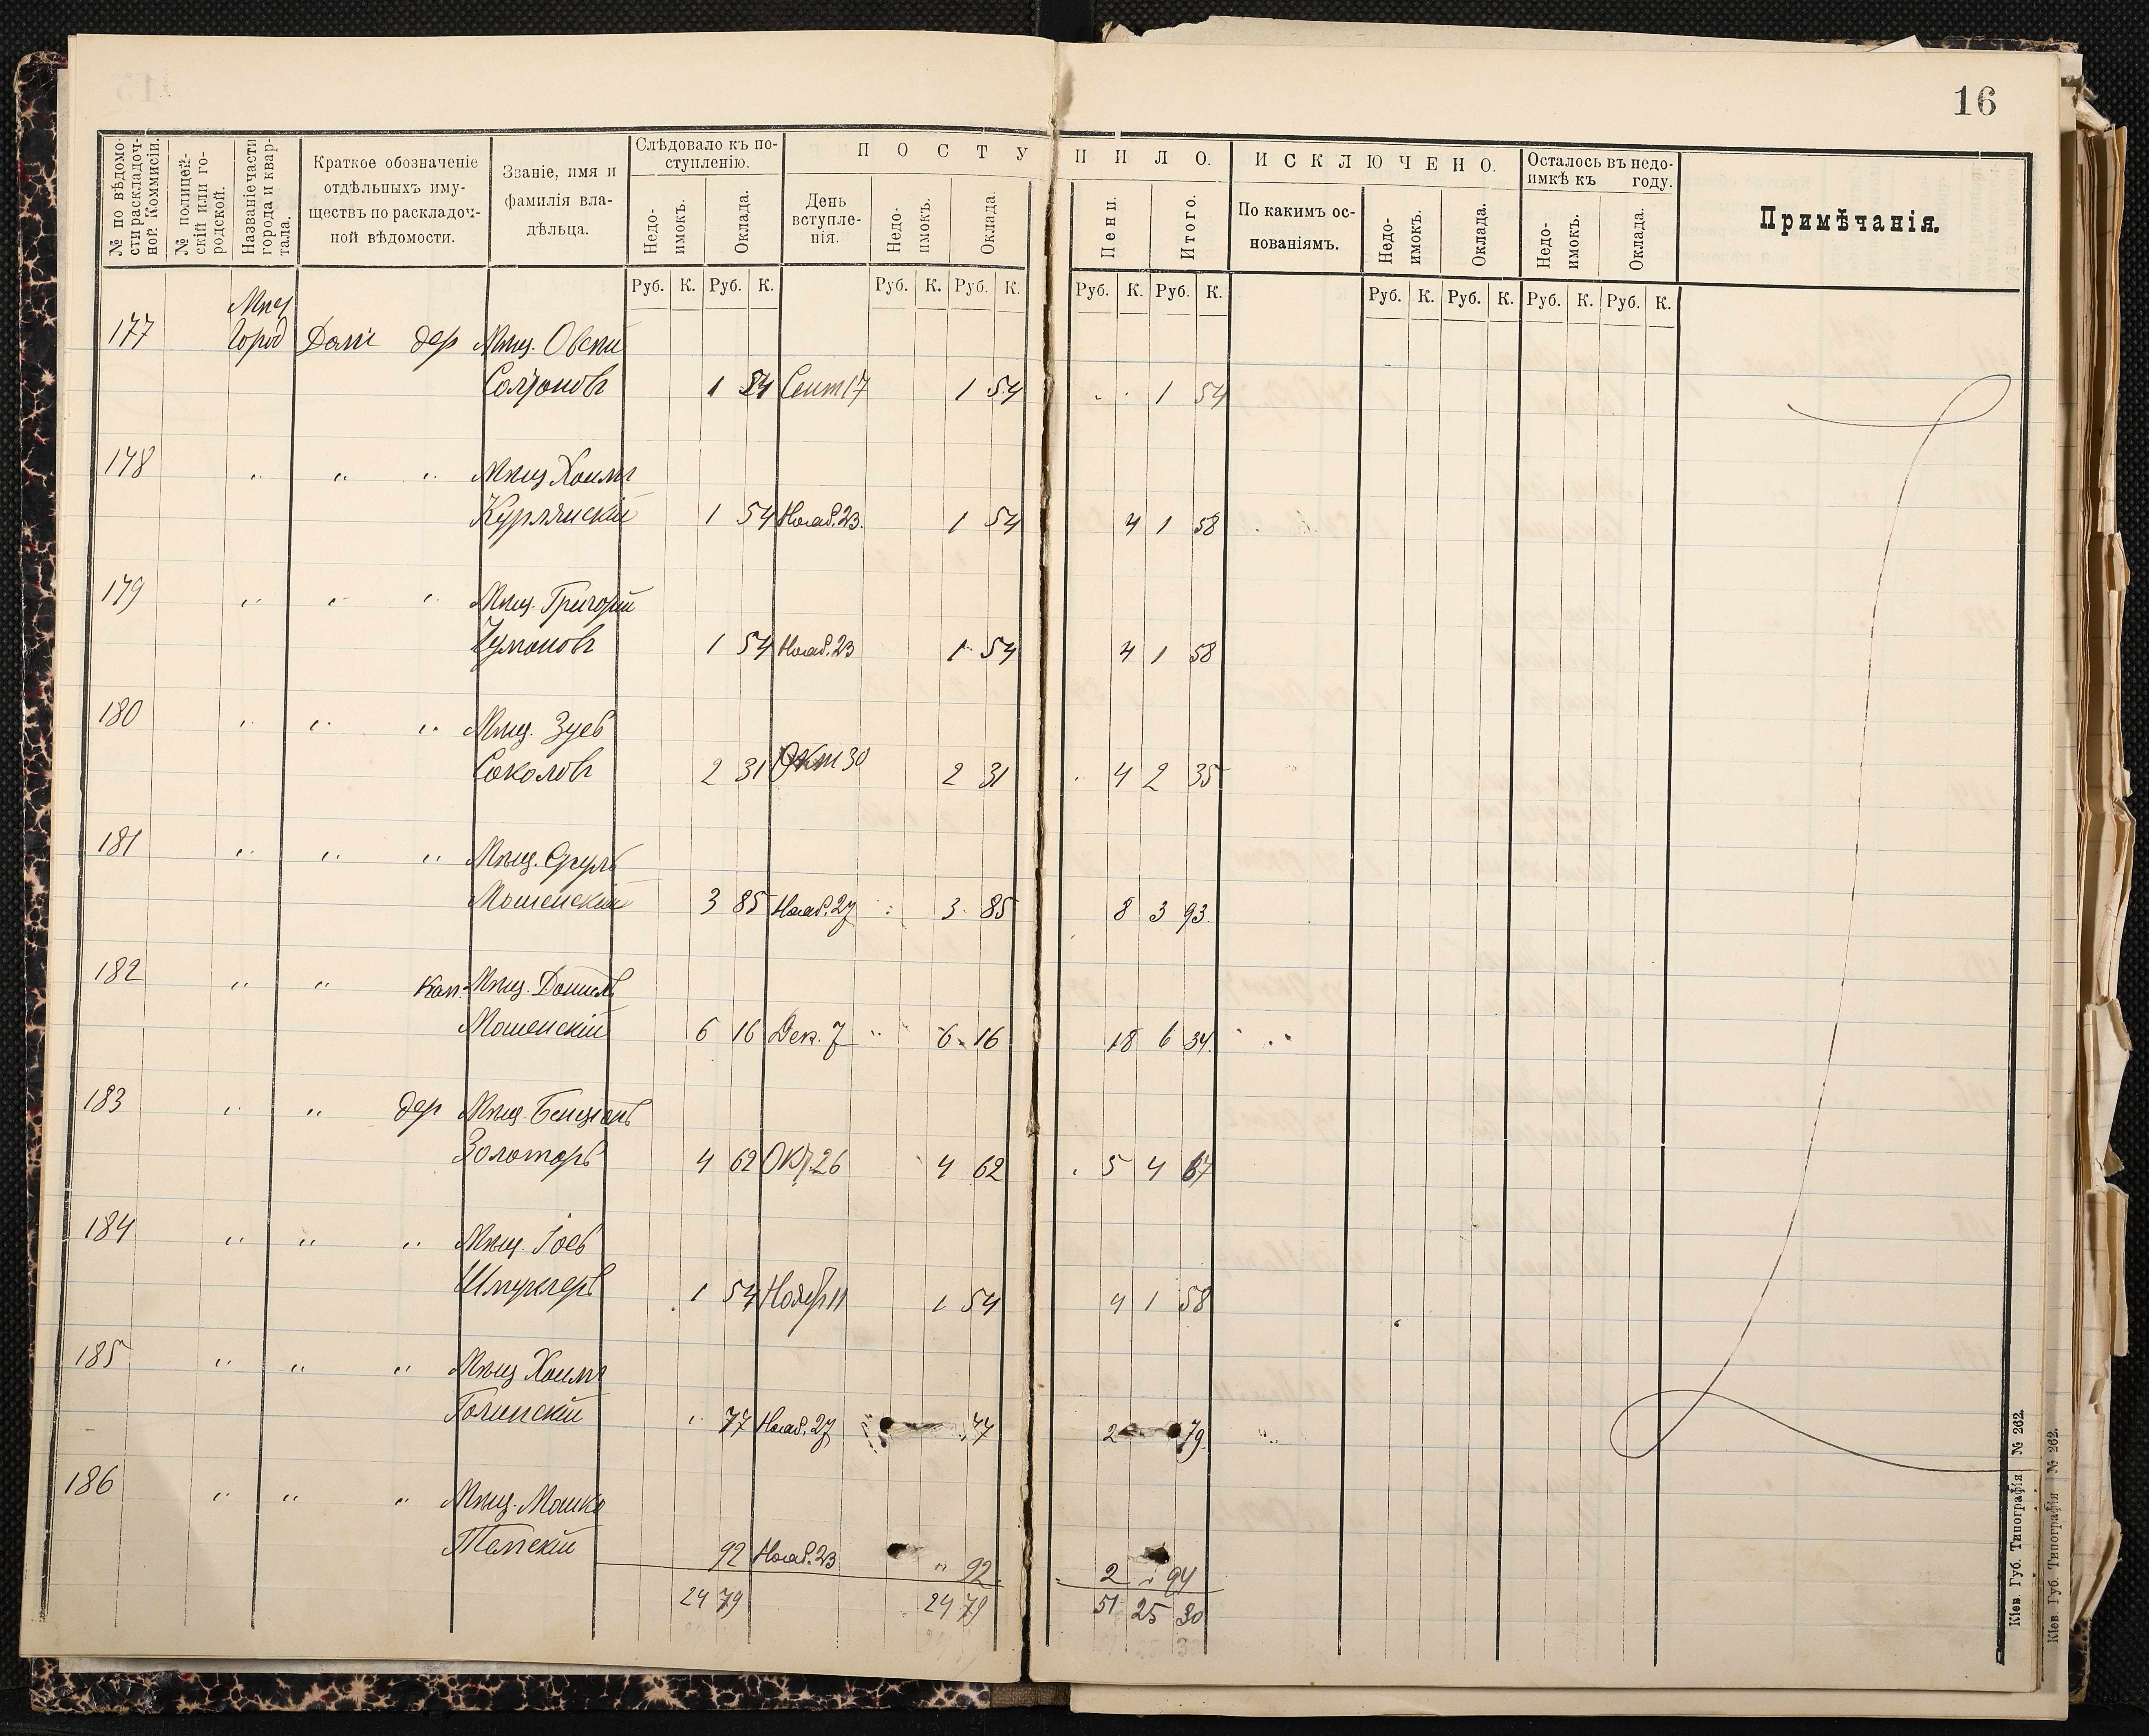 16
№ по вѣдомости раскладочной Коммисіи.
№ полицейскій или городской.
Названіе части города и квартала.
Краткое обозначеніе отдѣльныхъ имуществъ по раскладочной вѣдомости.
Званіе, имя и фамилія владѣльца.
Слѣдовало къ поступленію.
ПОСТУПИЛО.
ИСКЛЮЧЕНО.
Осталось въ недоимкѣ къ году.
Примѣчанія.
Недоимокъ. Оклада. День вступленія. Недоимокъ. Оклада. Пени. Итого. По какимъ основаніямъ. Недоимокъ. Оклада. Недоимокъ. Оклада.
Руб. К. Руб. К. Руб. К. Руб. К. Руб. К. Руб. К. Руб. К. Руб. К. Руб. К. Руб. К.
177 Город дер Мѣщ.
1 54 Сент 17 1 54 1 54
178 " " " Мѣщ Хаимъ
Курлянскій 1 54 Нояб. 23 1 54 4 1 58
179 " " " Мѣщ. Григорій
1 54 Нояб. 23 1 54 4 1 58
180 " " " Мѣщ. Зуев
Соколовъ 2 31 Окт 30 2 31 4 2 35
181 " " " Мѣщ. Сруль
Мошенскій 3 85 Нояб. 27 3 85 8 3 93
182 " " Кам. Мѣщ. Даниель
Мошенскій 6 16 Дек. 7 6 16 18 6 34
183 " " дер Мѣщ. Бенціонъ
Золоторь 4 62 Окт. 26 4 62 5 4 67
184 " " " Мѣщ.
1 54 Ноябр 11 1 54 4 1 58
185 " " " Мѣщ Хаимъ
77 Нояб. 27 77 2 79
186 " " " Мѣщ. Мошко
92 Нояб. 23 " 92 2 94
24 79 24 79 51 25 30
Кіев Губ. Типографія № 262.
Кіев Губ. Типографія № 262.